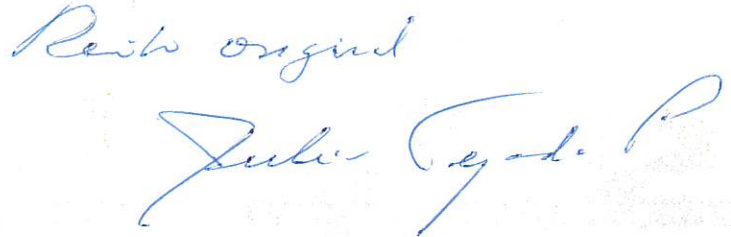 Recibo original
Julio Tejada P